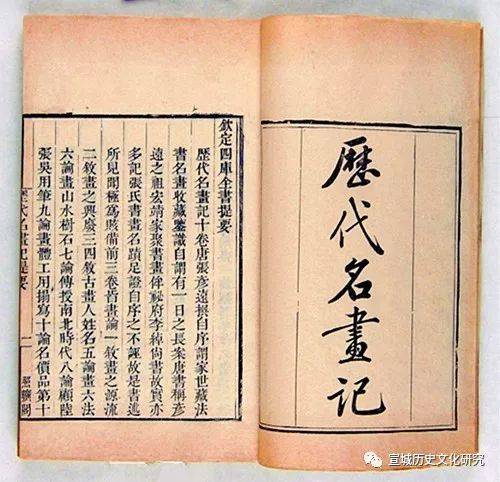 歷代名畫記
欽定四庫全書提要
歷代名畫記十卷唐張彥遠撰自序謂家世藏法
書名畫收藏鑒識自謂有一日之長案唐書稱彥
遠之祖宏靖家聚書畫侔祕府李綽尚書故實亦
多記張氏書畫名蹟足證自序之不誣故是書述
所見聞極爲賅備前三卷皆畫論一敘畫之源流
二敘畫之興廢三四敘古畫人姓名五論畫六法
六論畫山水樹石七論傳授南北時代八論顧陸
張吳用筆九論畫體工用搨寫十論名價品第十
歷代名畫記提要 一 照曠閣
宣城历史文化研究